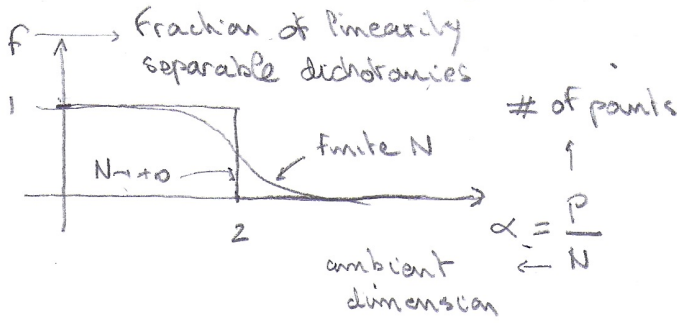 f → Fraction of linearily
separable dichotomies
1
# of points
finite N
N→+∞
2
α = P/N
ambient
dimension